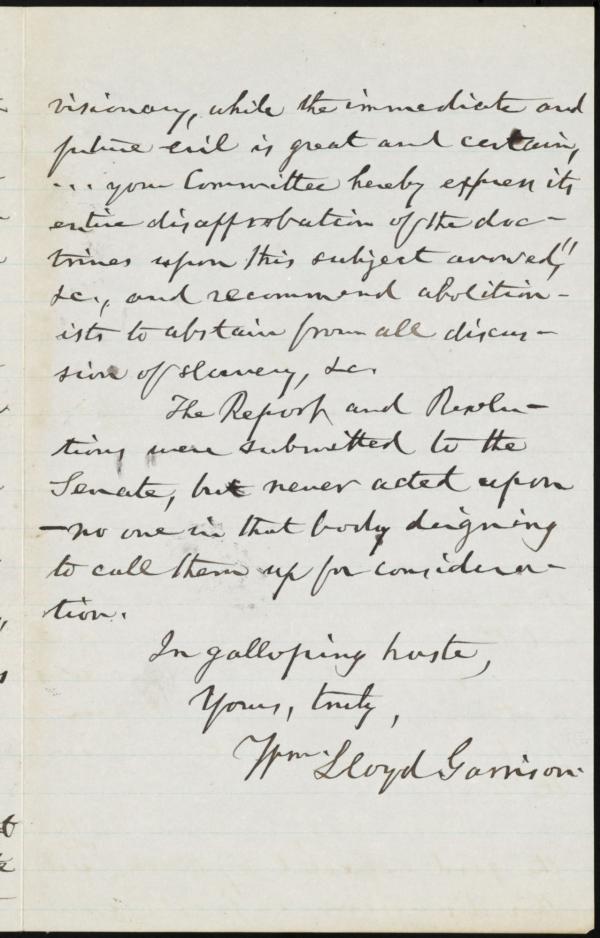 visionary, while the immediate and
future evil is great and certain,
... your Committee hereby express its
entire disapprobation of the doc-
trines upon this subject avowed,"
&c., and recommend abolition-
ists to abstain from all discus-
sion of slavery, &c.
The Report and Resolu-
tions were submitted to the
Senate, but never acted upon
—no one in that body deigning
to call them up for considera-
tion.
In galloping haste,
Yours, truly,
Wm. Lloyd Garrison.